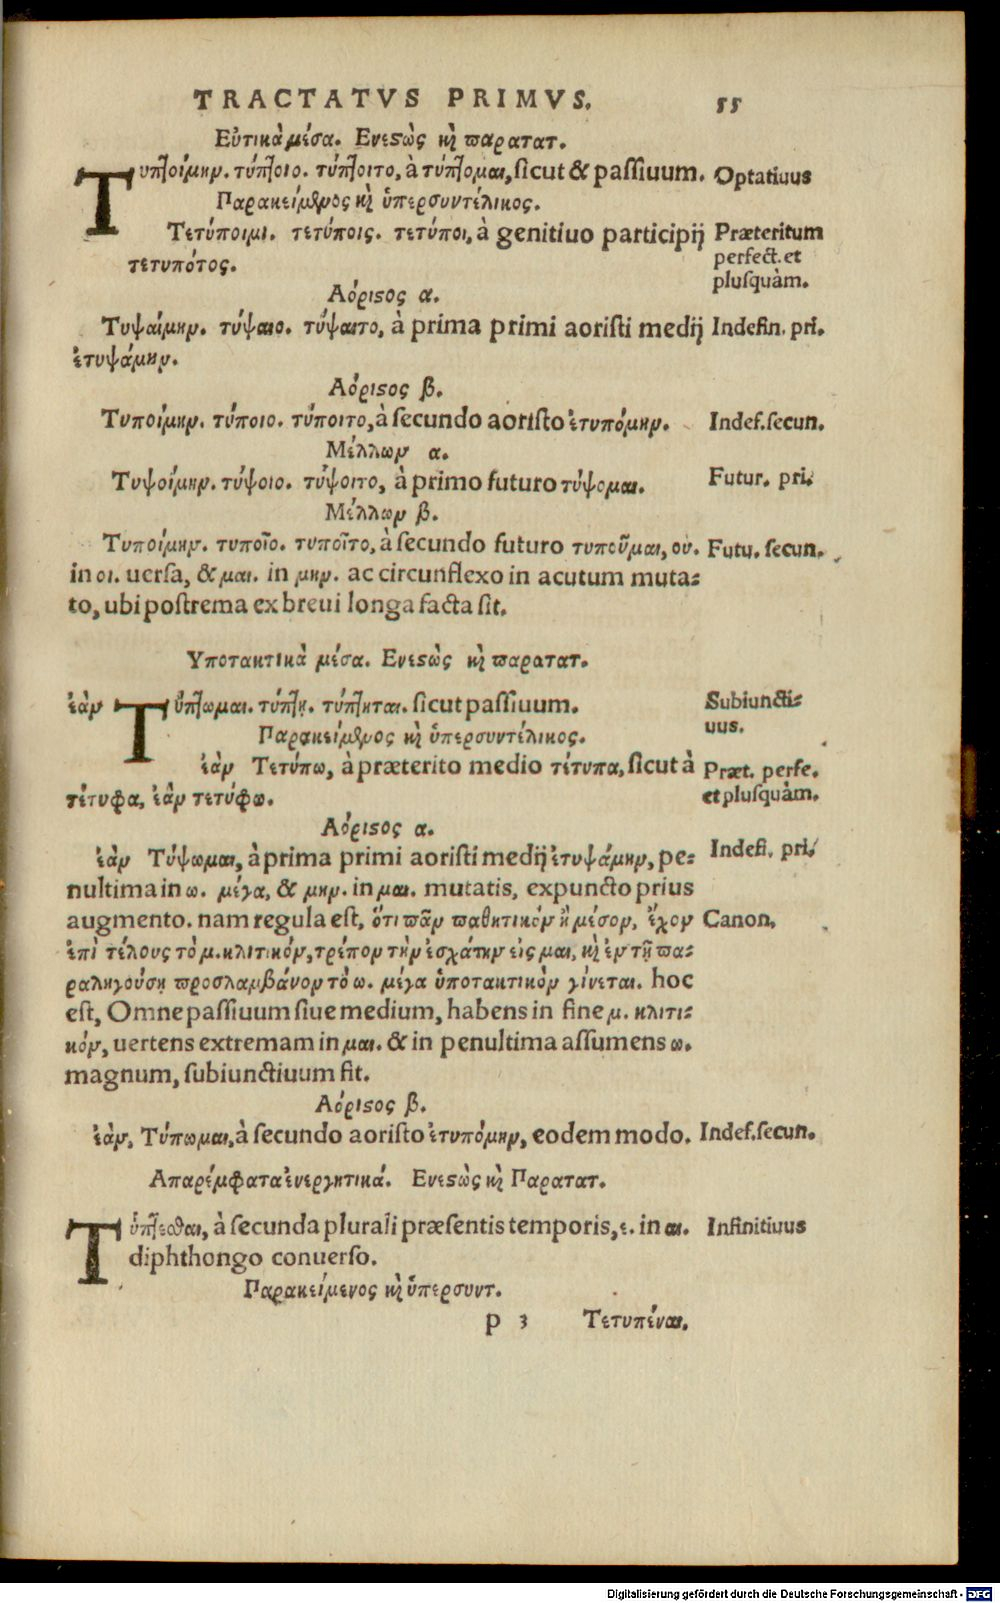 TRACTATVS PRIMVS. 55
Εὐτικὰ μέσα. Ενεςὼς κ̀ παρατατ.
Τυπτοίμην. τύπτοιο. τύπτοιτο, à τύπτομαι, sicut & passiuum. Optatiuus
Παρακείμενος κ̀ ὑπερσυντέλικος.
Τετύποιμι. τετύποις. τετύποι, à genitiuo participij Præteritum
τετυπότος. perfect. et
plusquàm.
Αόριςος α.
Τυψαίμην. τύψαιο. τύψαιτο, à prima primi aoristi medij Indefin. pri.
ἐτυψάμην.
Αόριςος β.
Τυποίμην. τύποιο. τύποιτο, à secundo aoristo ἐτυπόμην. Indef. secun.
Μέλλων α.
Τυψοίμην. τύψοιο. τύψοιτο, à primo futuro τύψομαι. Futur. pri.
Μέλλων β.
Τυποίμην. τυποῖο. τυποῖτο, à secundo futuro τυποῦμαι, ου. Futu. secun.
in οι. uersa, & μαι. in μην. ac circunflexo in acutum muta-
to, ubi postrema ex breui longa facta sit.
Υποτακτικὰ μέσα. Ενεςὼς κ̀ παρατατ.
ἐὰν Τύπτωμαι. τύπτῃ. τύπτηται. sicut passiuum. Subiuncti-
uus.
Παρακείμενος κ̀ ὑπερσυντέλικος.
ἐὰν Τετύπω, à præterito medio τέτυπα, sicut à Præt. perfe.
τέτυφα, ἐὰν τετύφω. et plusquàm.
Αόριςος α.
ἐὰν Τύψωμαι, à prima primi aoristi medij ἐτυψάμην, pe- Indefi. pri.
nultima in ω. μέγα, & μην. in μαι. mutatis, expuncto prius
augmento. nam regula est, ὅτι πᾶν παθητικὸν ἢ μέσον, ἔχον Canon.
ἐπὶ τέλους τὸ μ. κλιτικόν, τρέπον τὴν ἐσχάτην εἰς μαι, κ̀ ἐν τῇ πα-
ραληγούσῃ προσλαμβάνον τὸ ω. μέγα ὑποτακτικὸν γίνεται. hoc
est, Omne passiuum siue medium, habens in fine μ. κλιτι-
κόν, uertens extremam in μαι. & in penultima assumens ω.
magnum, subiunctiuum fit.
Αόριςος β.
ἐὰν, Τύπωμαι, à secundo aoristo ἐτυπόμην, eodem modo. Indef. secun.
Απαρέμφατα ἐνεργητικά. Ενεςὼς κ̀ Παρατατ.
Τύπτεσθαι, à secunda plurali præsentis temporis, ε. in αι. Infinitiuus
diphthongo conuerso.
Παρακείμενος κ̀ ὑπερσυντ.
p 3 Τετυπέναι.
Digitalisierung gefördert durch die Deutsche Forschungsgemeinschaft - DFG